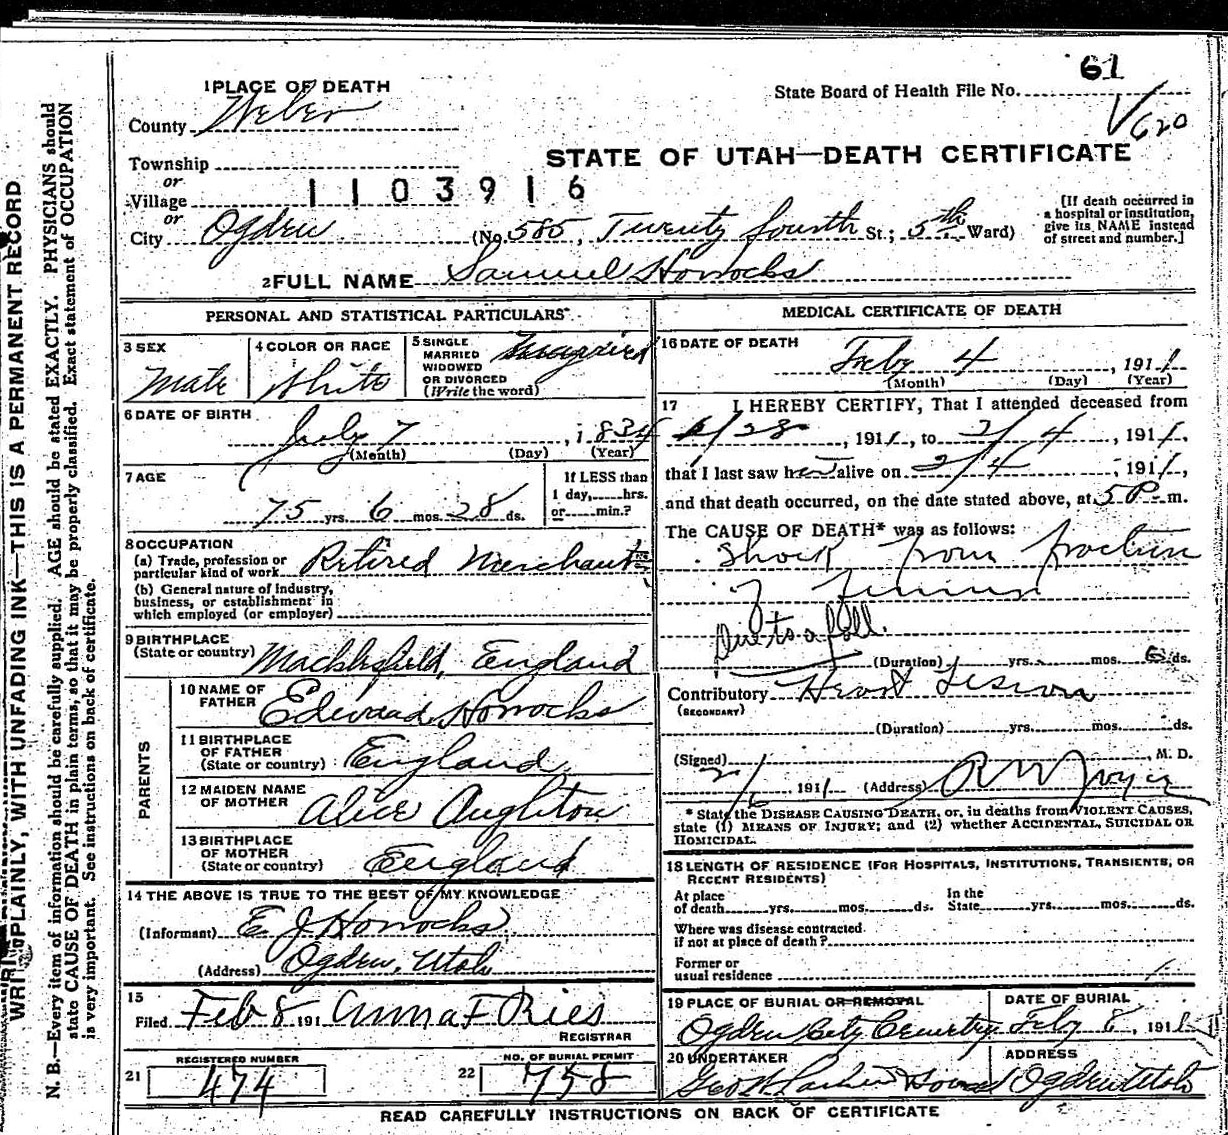 61
State Board of Health File No.
V 620
1 PLACE OF DEATH
County Weber
STATE OF UTAH—DEATH CERTIFICATE
Township
or
Village 1103916
or
City Ogden (No. 585, Twenty fourth St.; 5th Ward)
[If death occurred in
a hospital or institution,
give its NAME instead
of street and number.]
2 FULL NAME Samuel Horrocks
PERSONAL AND STATISTICAL PARTICULARS
3 SEX
Male
4 COLOR OR RACE
White
5 SINGLE
MARRIED
WIDOWED
OR DIVORCED
(Write the word)
Married
6 DATE OF BIRTH
July 7, 1834
(Month) (Day) (Year)
7 AGE
75 yrs. 6 mos. 28 ds.
If LESS than
1 day, hrs.
or min.?
8 OCCUPATION
(a) Trade, profession or
particular kind of work Retired Merchant
(b) General nature of industry,
business, or establishment in
which employed (or employer)
9 BIRTHPLACE
(State or country) Macklesfield, England
PARENTS
10 NAME OF
FATHER Edward Horrocks
11 BIRTHPLACE
OF FATHER
(State or country) England
12 MAIDEN NAME
OF MOTHER Alice Aughton
13 BIRTHPLACE
OF MOTHER
(State or country) England
14 THE ABOVE IS TRUE TO THE BEST OF MY KNOWLEDGE
(Informant) E J Horrocks
(Address) Ogden, Utah
15
Filed Feb 8 191 Anna F Ries
REGISTRAR
REGISTERED NUMBER
21 474
NO. OF BURIAL PERMIT
22 758
MEDICAL CERTIFICATE OF DEATH
16 DATE OF DEATH
Feby 4, 1911
(Month) (Day) (Year)
17 I HEREBY CERTIFY, That I attended deceased from
1/28, 1911, to 2/4, 1911,
that I last saw h alive on 2/4, 1911,
and that death occurred, on the date stated above, at 5 P. m.
The CAUSE OF DEATH* was as follows:
Shock from fracture
of Femur
Due to a fall.
(Duration) yrs. mos. 6 ds.
Contributory Heart Lesion
(SECONDARY)
(Duration) yrs. mos. ds.
(Signed) M. D.
2/6, 1911 (Address)
* State the DISEASE CAUSING DEATH, or, in deaths from VIOLENT CAUSES,
state (1) MEANS OF INJURY; and (2) whether ACCIDENTAL, SUICIDAL OR
HOMICIDAL.
18 LENGTH OF RESIDENCE (FOR HOSPITALS, INSTITUTIONS, TRANSIENTS, OR
RECENT RESIDENTS)
At place
of death yrs. mos. ds.
In the
State yrs. mos. ds.
Where was disease contracted
if not at place of death?
Former or
usual residence
19 PLACE OF BURIAL OR REMOVAL
Ogden City Cemetry
DATE OF BURIAL
Feby 8, 1911
20 UNDERTAKER
Geo W. Larkin
ADDRESS
Ogden Utah
READ CAREFULLY INSTRUCTIONS ON BACK OF CERTIFICATE
WRITE PLAINLY, WITH UNFADING INK—THIS IS A PERMANENT RECORD
N. B.—Every item of information should be carefully supplied. AGE should be stated EXACTLY. PHYSICIANS should
state CAUSE OF DEATH in plain terms, so that it may be properly classified. Exact statement of OCCUPATION
is very important. See instructions on back of certificate.